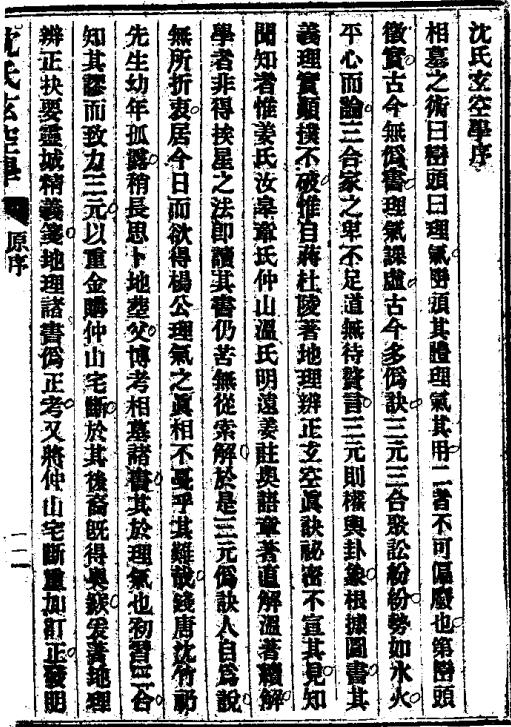 沈氏玄空學序
相墓之術曰巒頭曰理氣巒頭其體理氣其用二者不可偏廢也第巒頭
徵實古今無僞書理氣課虛古今多僞訣三元三合聚訟紛紛勢如水火
平心而論三合家之卑不足道無待贅言三元則權輿卦象根據圖書其
義理實顚撲不破惟自蔣杜陵著地理辨正玄空眞訣祕密不宣其見知
聞知者惟姜氏汝皋章氏仲山溫氏明遠姜註奧語章著直解溫著續解
學者非得挨星之法卽讀其書仍苦無從索解於是三元僞訣人自爲說
無所折衷居今日而欲得楊公理氣之眞相不戞乎其難哉錢唐沈竹礽
先生幼年孤露稍長思卜地塟父博考相墓諸書其於理氣也初習三合
知其謬而致力三元以重金購仲山宅斷於其後裔旣得奧窾爰著地理
辨正抉要靈城精義箋地理諸書僞正考又將仲山宅斷重加訂正發明
沈氏玄空學
原序
二